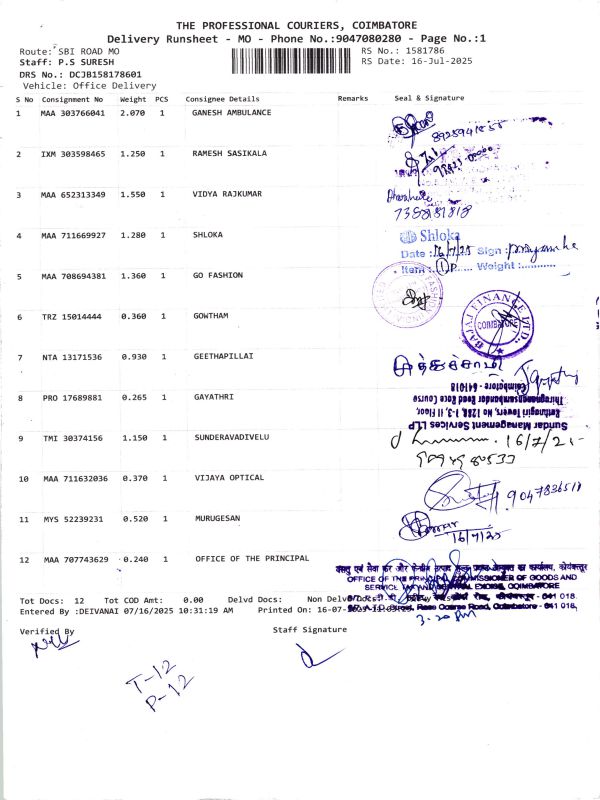 THE PROFESSIONAL COURIERS, COIMBATORE
Delivery Runsheet - MO - Phone No.:9047080280 - Page No.:1
Route: SBI ROAD MO
RS No.: 1581786
Staff: P.S SURESH
RS Date: 16-Jul-2025
DRS No.: DCJB158178601
Vehicle: Office Delivery
S No Consignment No Weight PCS Consignee Details Remarks Seal & Signature
1 MAA 303766041 2.070 1 GANESH AMBULANCE
2 IXM 303598465 1.250 1 RAMESH SASIKALA
3 MAA 652313349 1.550 1 VIDYA RAJKUMAR
4 MAA 711669927 1.280 1 SHLOKA
Shloka
Date : 16/7/25 Sign : Priyanka
Item : 1 P..... Weight :...........
5 MAA 708694381 1.360 1 GO FASHION
6 TRZ 15014444 0.360 1 GOWTHAM
BAJAJ FINANCE LTD.,
COIMBATORE
7 NTA 13171536 0.930 1 GEETHAPILLAI
முத்துச்சாமி
8 PRO 17689881 0.265 1 GAYATHRI
Sundar Management Services LLP
Rathnagiri Towers, No 1288, 1-3, II Floor,
Thirugnanasambandam Road Race Course
Coimbatore - 641018
9 TMI 30374156 1.150 1 SUNDERAVADIVELU
16/7/25
10 MAA 711632036 0.370 1 VIJAYA OPTICAL
9047836518
11 MYS 52239231 0.520 1 MURUGESAN
16/7/25
12 MAA 707743629 0.240 1 OFFICE OF THE PRINCIPAL
OFFICE OF THE PRINCIPAL COMMISSIONER OF GOODS AND
SERVICE TAX AND CENTRAL EXCISE, COIMBATORE
Race Course Road, Coimbatore - 641 018.
3.20 PM
Tot Docs: 12 Tot COD Amt: 0.00 Delvd Docs: Non Delvd Docs:
Entered By :DEIVANAI 07/16/2025 10:31:19 AM Printed On: 16-07-2025
Verified By
Staff Signature
T-12
P-12